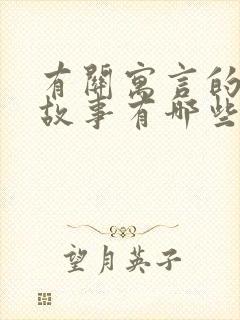 有關寓言的
故事有哪些
望月英子